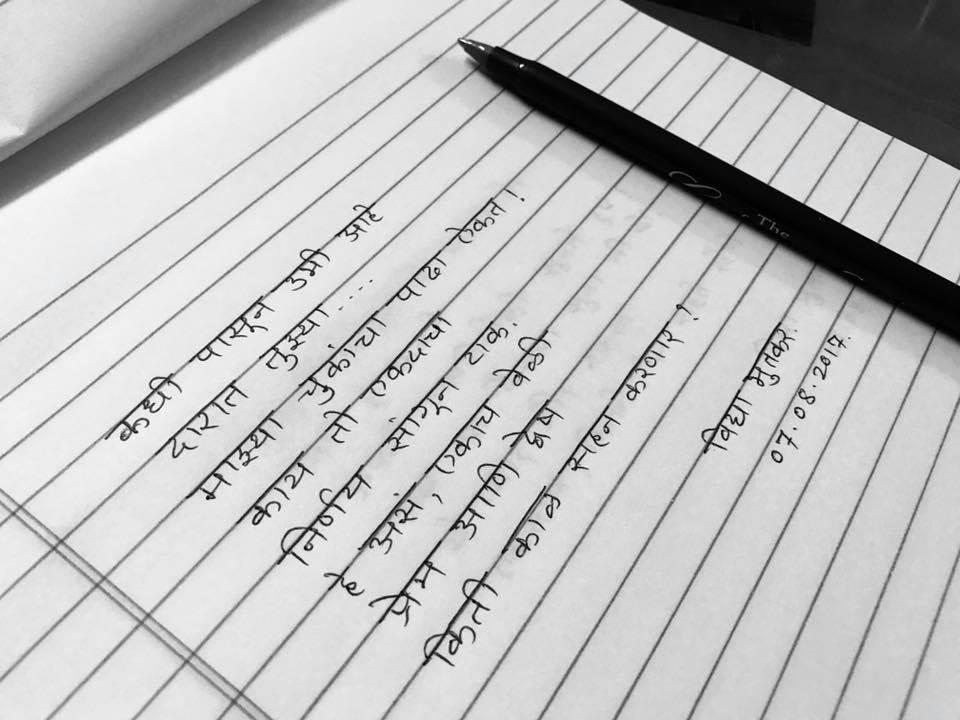 कधी पासून उभी आहे
दारात तुझ्या....
माझ्या चुकांचा पाढा ऐकत!
काय तो एकदाचा
निर्णय सांगून टाक.
हे असं, एकाच वेळी
प्रेम आणि द्वेष
किती काळ सहन करणार!
विद्या भुतकर.
07.08.2017.
The